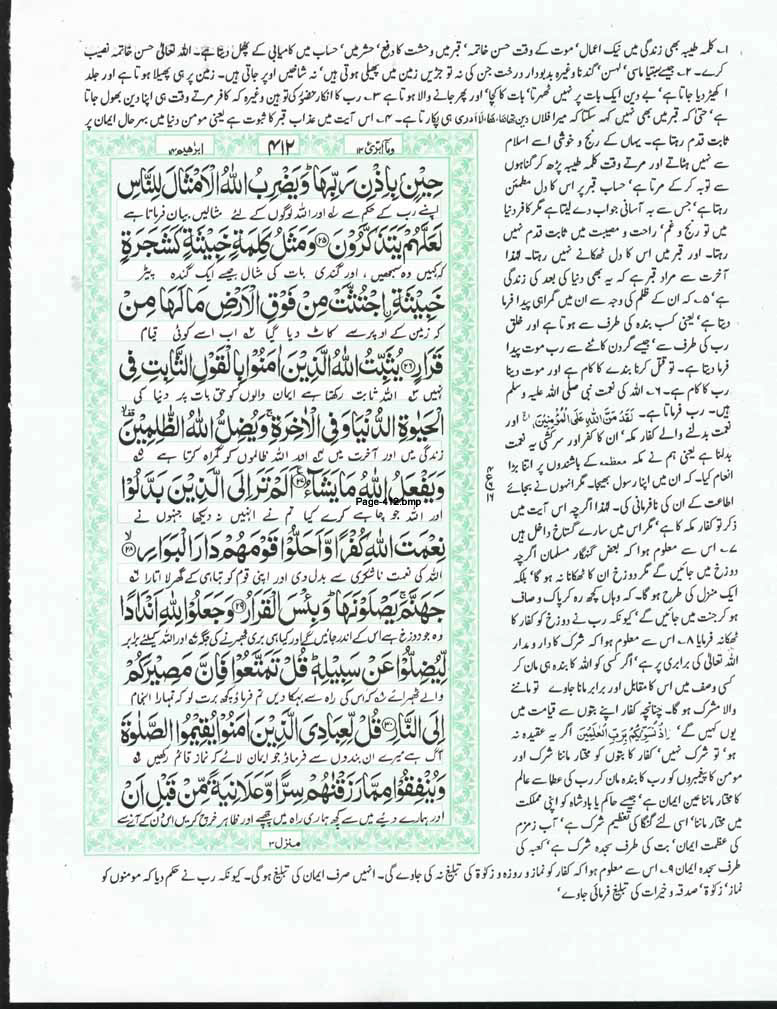 ۱۔ کلمہ طیبہ بھی زندگی میں نیک اعمال' موت کے وقت حسن خاتمہ' قبر میں وحشت کا دفع' حشر میں' حساب میں کامیابی کے پھل دیتا ہے۔ اللہ تعالیٰ حسن خاتمہ نصیب
کرے۔ ۲۔ جیسے لہسن' گندنا وغیرہ بدبودار درخت جن کی نہ تو جڑیں زمین میں پھیلی ہوتی ہیں' نہ شاخیں اوپر جاتی ہیں۔ زمین پر ہی پھیلا ہوتا ہے اور جلد
اکھیڑ دیا جاتا ہے' بے دین ایک بات پر نہیں ٹھہرتا' بات کا کچا' اور پھر جانے والا ہوتا ہے ۳۔ رب کا انکار حضور کی توہین وغیرہ کہ کافر مرتے وقت ہی اپنا دین بھول جاتا
ہے' حتیٰ کہ قبر میں بھی نہیں کہہ سکتا کہ میرا فلاں دین تھا ہی پکارتا ہے۔ ۴۔ اس آیت میں عذاب قبر کا ثبوت ہے یعنی مومن دنیا میں بہرحال ایمان پر
ثابت قدم رہتا ہے۔ یہاں کے رنج و خوشی اسے اسلام
سے نہیں ہٹاتے اور مرتے وقت کلمہ طیبہ پڑھ کر گناہوں
سے توبہ کر کے مرتا ہے' حساب قبر پر اس کا دل مطمئن
رہتا ہے' جس سے بہ آسانی جواب دے لیتا ہے مگر کافر دنیا
میں تو رنج و غم' راحت و مصیبت میں ثابت قدم نہیں
رہتا۔ اور قبر میں اس کا دل ٹھکانے نہیں رہتا۔ لہٰذا
آخرت سے مراد قبر ہے کہ یہ بھی دنیا کی بعد کی زندگی
ہے' ۵۔ کہ ان کے ظلم کی وجہ سے ان میں گمراہی پیدا فرما
دیتا ہے' یعنی کسب بندہ کی طرف سے ہوتا ہے اور خلق
رب کی طرف سے' جیسے گردن کاٹنے سے رب موت پیدا
فرما دیتا ہے۔ تو قتل کرنا بندے کا کام ہے اور موت دینا
رب کا کام ہے۔ ۶۔ اللہ کی نعمت نبی صلی اللہ علیہ وسلم
ہیں۔ رب فرماتا ہے۔ لَقَدْ مَنَّ اللهُ عَلَى الْمُؤْمِنِيْنَ اور
نعمت بدلنے والے کفار مکہ' ان کا کفر اور سرکشی یہ نعمت
بدلنا ہے یعنی ہم نے مکہ معظمہ کے باشندوں پر اتنا بڑا
انعام کیا۔ کہ ان میں اپنا رسول بھیجا۔ مگر انہوں نے بجائے
اطاعت کے ان کی نافرمانی کی۔ لہٰذا اگرچہ اس آیت میں
ذکر تو کفار مکہ کا ہے' مگر اس میں سارے گستاخ داخل ہیں
۷۔ اس سے معلوم ہوا کہ بعض گنہگار مسلمان اگرچہ
دوزخ میں جائیں گے مگر دوزخ ان کا ٹھکانا نہ ہو گا' بلکہ
ایک منزل کی طرح ہو گا۔ کہ وہاں کچھ رہ کر پاک و صاف
ہو کر جنت میں جائیں گے' کیونکہ رب نے دوزخ کو کفار کا
ٹھکانہ فرمایا ۸۔ اس سے معلوم ہوا کہ شرک کا دار و مدار
اللہ تعالیٰ کی برابری پر ہے' اگر کسی کو اللہ کا بندہ ہی مان کر
کسی وصف میں اس کا مقابل اور برابر مانا جاوے تو ماننے
والا مشرک ہو گا۔ چنانچہ کفار اپنے بتوں سے قیامت میں
یوں کہیں گے' اِذْ نُسَوِّيْكُمْ بِرَبِّ الْعٰلَمِيْنَ اگر یہ عقیدہ نہ
ہو' تو شرک نہیں' کفار کا بتوں کو مختار ماننا شرک اور
مومن کا پیغمبروں کو رب کا بندہ مان کر رب کی عطا سے عالم
کا مختار ماننا عین ایمان ہے' جیسے حاکم یا بادشاہ کو اپنی مملکت
میں مختار ماننا' اسی لئے گنگا کی تعظیم شرک ہے' آب زمزم
کی عظمت ایمان' بت کی طرف سجدہ شرک ہے' کعبہ کی
طرف سجدہ ایمان ۹۔ اس سے معلوم ہوا کہ کفار کو نماز و روزہ و زکوٰۃ کی تبلیغ نہ کی جاوے گی۔ انہیں صرف ایمان کی تبلیغ ہو گی۔ کیونکہ رب نے حکم دیا کہ مومنوں کو
نماز' زکوٰۃ' صدقہ و خیرات کی تبلیغ فرمائی جاوے'
وما ابرئ ۱۳
۴۱۲
ابرٰهيم ۱۴
حِيْنٍۭ بِاِذْنِ رَبِّهَا ؕ وَيَضْرِبُ اللّٰهُ الْاَمْثَالَ لِلنَّاسِ
اپنے رب کے حکم سے ۱ اور اللہ لوگوں کے لئے مثالیں بیان فرماتا ہے
لَعَلَّهُمْ يَتَذَكَّرُوْنَ ۲۵ وَمَثَلُ كَلِمَةٍ خَبِيْثَةٍ كَشَجَرَةٍ
کہ کہیں وہ سمجھیں ، اور گندی بات کی مثال جیسے ایک گندہ پیڑ
خَبِيْثَةِ ۨاجْتُثَّتْ مِنْ فَوْقِ الْاَرْضِ مَا لَهَا مِنْ
کہ زمین کے اوپر سے کاٹ دیا گیا ۲ اب اسے کوئی قیام
قَرَارٍ ۲۶ يُثَبِّتُ اللّٰهُ الَّذِيْنَ اٰمَنُوْا بِالْقَوْلِ الثَّابِتِ فِى
نہیں ۳ اللہ ثابت رکھتا ہے ایمان والوں کو حق بات پر دنیا کی
الْحَيٰوةِ الدُّنْيَا وَفِى الْاٰخِرَةِ ۚ وَيُضِلُّ اللّٰهُ الظّٰلِمِيْنَ
زندگی میں اور آخرت میں ۴ اور اللہ ظالموں کو گمراہ کرتا ہے ۵
وَيَفْعَلُ اللّٰهُ مَا يَشَآءُ ۲۷ اَلَمْ تَرَ اِلَى الَّذِيْنَ بَدَّلُوْا
Page-412.bmp
اور اللہ جو چاہے کرے کیا تم نے انہیں نہ دیکھا جنہوں نے
نِعْمَتَ اللّٰهِ كُفْرًا وَّاَحَلُّوْا قَوْمَهُمْ دَارَ الْبَوَارِ ۲۸
اللہ کی نعمت ناشکری سے بدل دی اور اپنی قوم کو تباہی کے گھر لا اتارا ۶
جَهَنَّمَ ۚ يَصْلَوْنَهَا ؕ وَبِئْسَ الْقَرَارُ ۲۹ وَجَعَلُوْا لِلّٰهِ اَنْدَادًا
وہ جو دوزخ ہے اس کے اندر جائیں گے اور کیا ہی بری ٹھہرنے کی جگہ ۷ اور اللہ کیلئے برابر
لِّيُضِلُّوْا عَنْ سَبِيْلِهٖ ؕ قُلْ تَمَتَّعُوْا فَاِنَّ مَصِيْرَكُمْ
والے ٹھہرائے ۸ کہ اس کی راہ سے بہکا دیں تم فرماؤ کچھ برت لو کہ تمہارا انجام
اِلَى النَّارِ ۳۰ قُلْ لِّعِبَادِىَ الَّذِيْنَ اٰمَنُوْا يُقِيْمُوا الصَّلٰوةَ
آگ ہے میرے ان بندوں سے فرماؤ جو ایمان لائے کہ نماز قائم رکھیں ۹
وَيُنْفِقُوْا مِمَّا رَزَقْنٰهُمْ سِرًّا وَّعَلَانِيَةً مِّنْ قَبْلِ اَنْ
اور ہمارے دیئے میں سے کچھ ہماری راہ میں چھپے اور ظاہر خرچ کریں اس دن کے آنے سے
منزل ۳